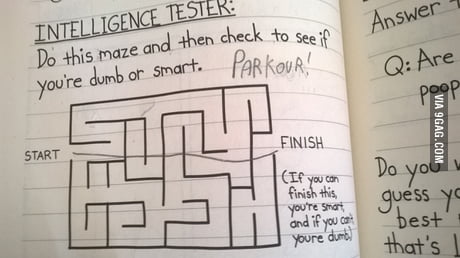 INTELLIGENCE TESTER:
Do this maze and then check to see if
you're dumb or smart.
PARKOUR!
START
FINISH
(If you can
finish this,
you're smart,
and if you can't
youre dumb)
Answer
Q: Are
poop
Do you
guess yo
best
that's
VIA 9GAG.COM